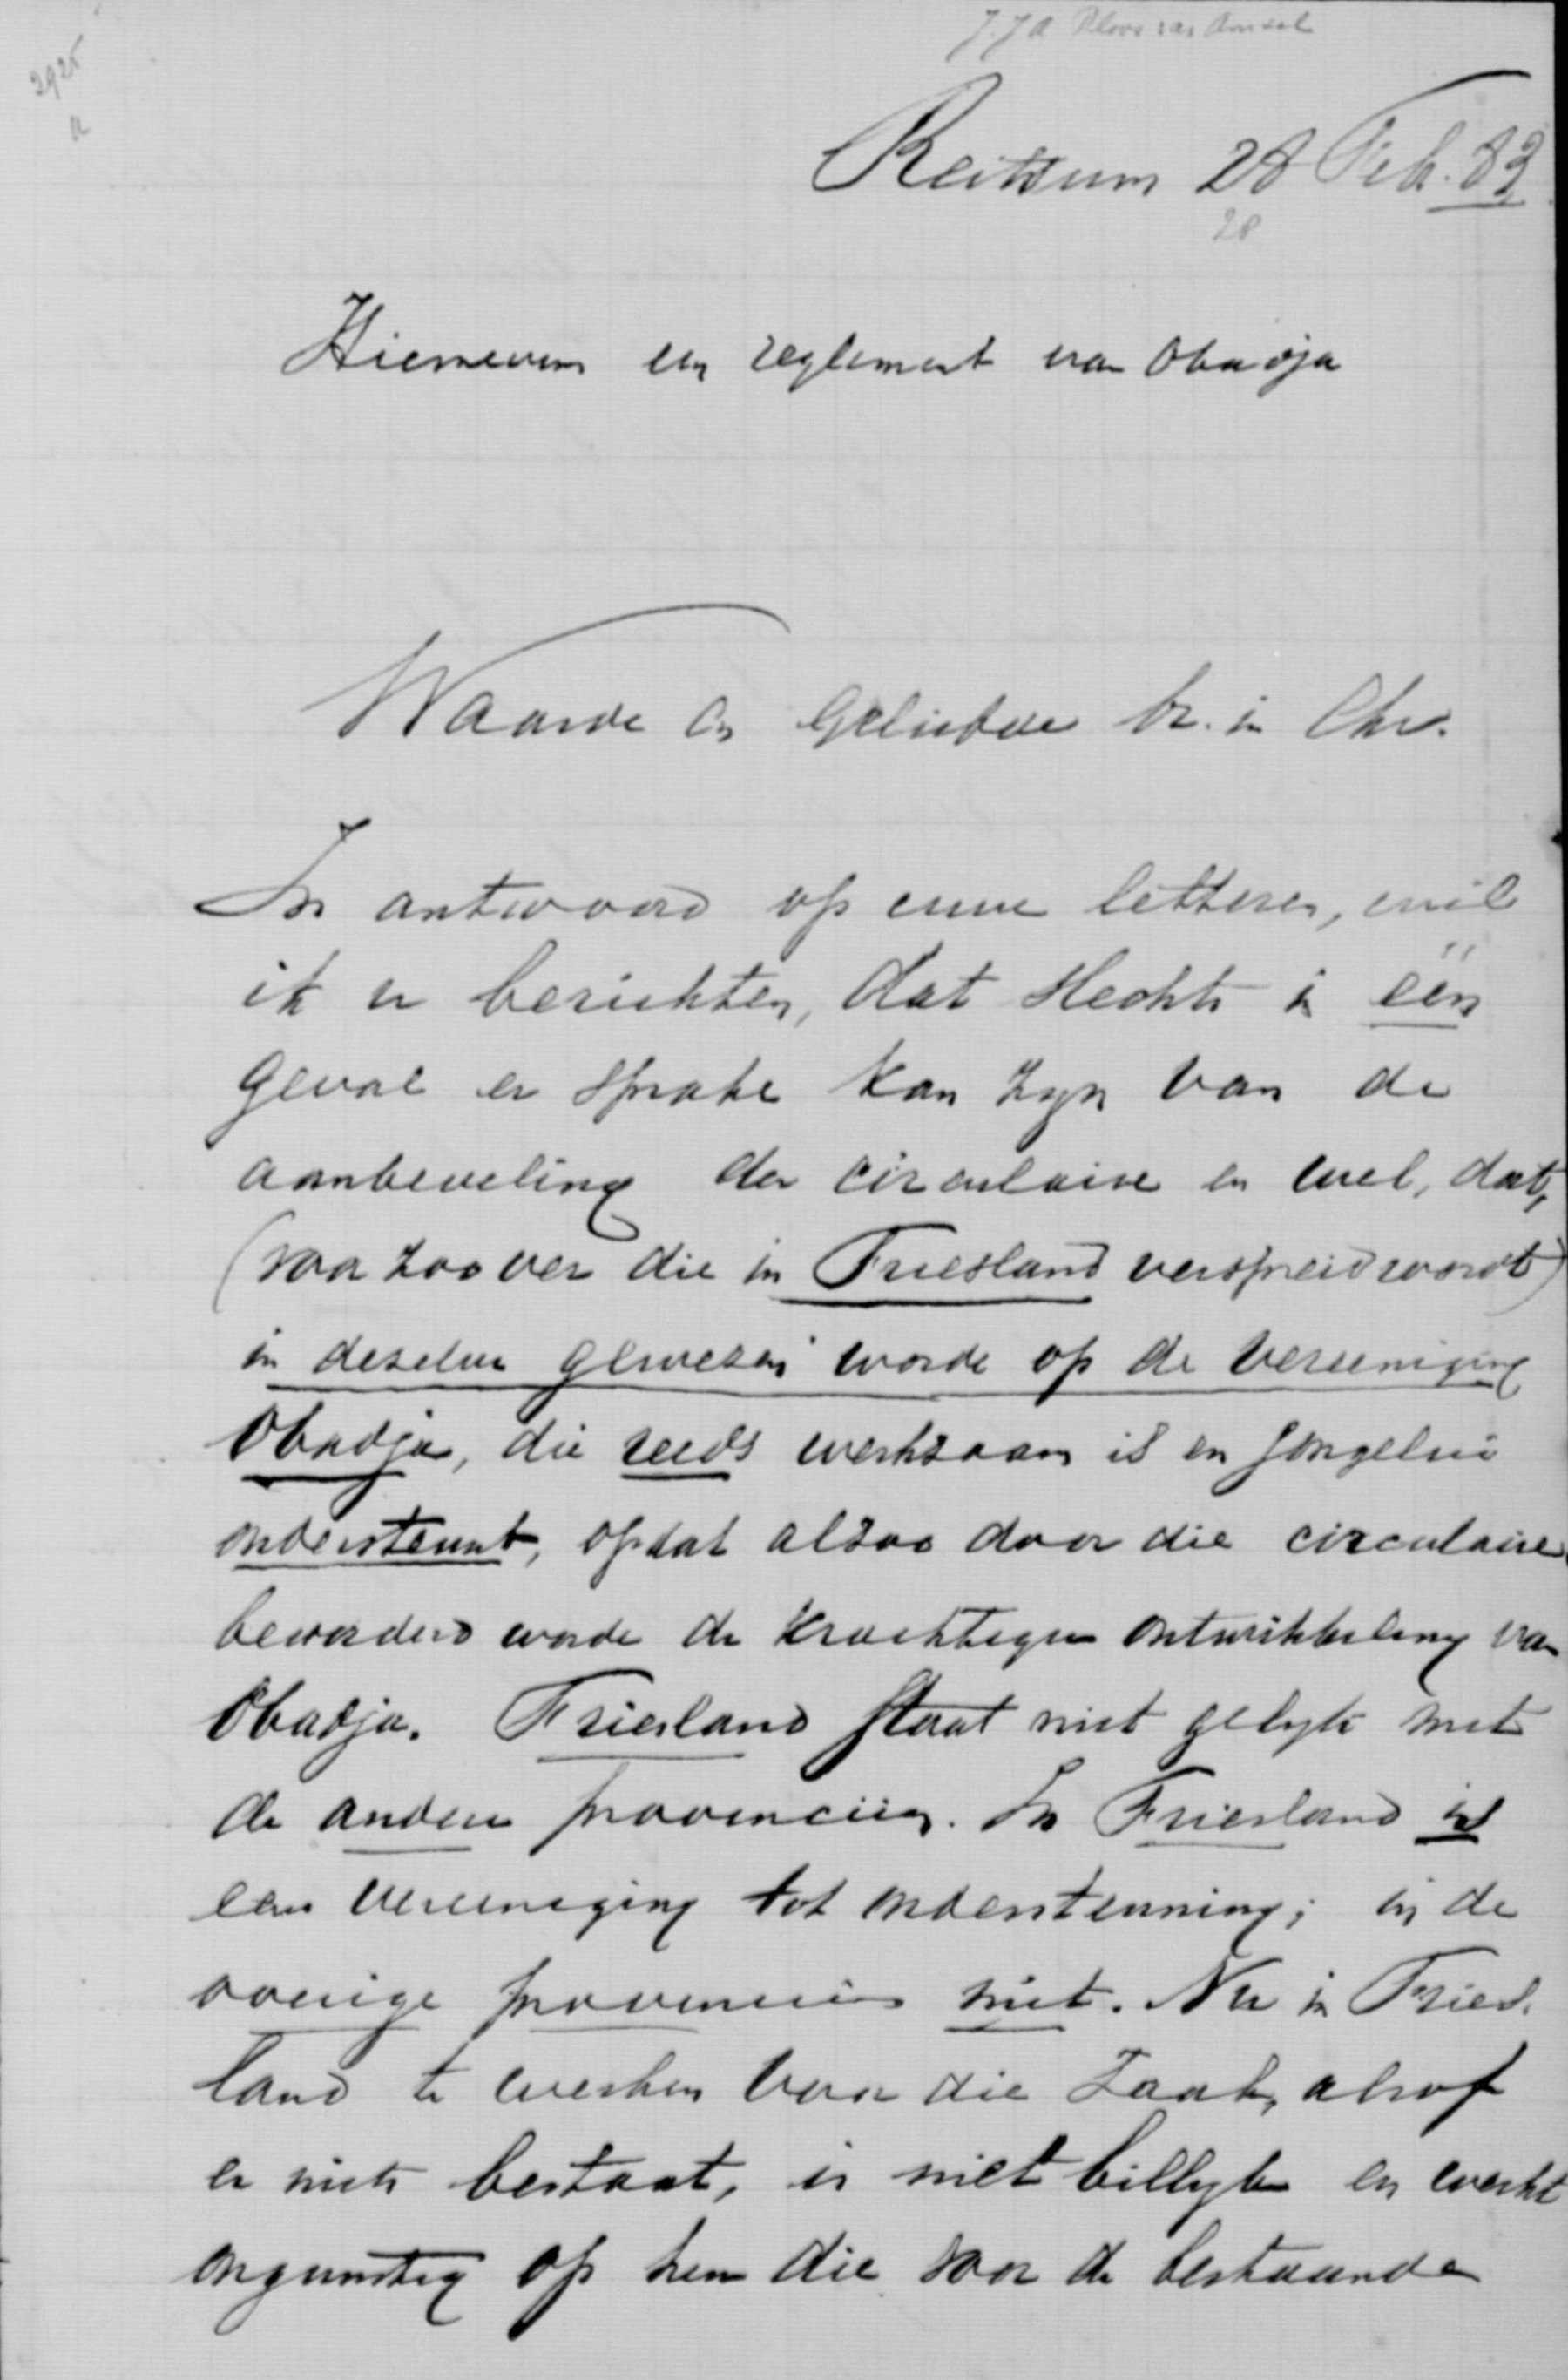 J. J. A Ploos van Amstel
2925
a
Reitsum 28 Feb. 83
28
Hiernevens een reglement van Obadja
Waarde en Geliefde br. in Chr.
In antwoord op uwe letteren, wil
ik u berichten, dat slechts in één
geval er sprake kan zyn van de
aanbeveling der circulaire en wel, dat,
(voor zoover die in Friesland verspreid wordt)
in dezelve gewezen worde op de Vereeniging
Obadja, die reeds werkzaam is en jongelui
ondersteunt, opdat alzoo door die circulaire
bevorderd worde de krachtiger ontwikkeling van
Obadja. Friesland staat niet gelyk met
de andere provinciën. In Friesland is
een vereeniging tot ondersteuning; in de
overige provinciën niet. Nu in Fries-
land te werken voor die zaak, alsof
er niets bestaat, is niet billyk en werkt
ongunstig op hen die voor de bestaande